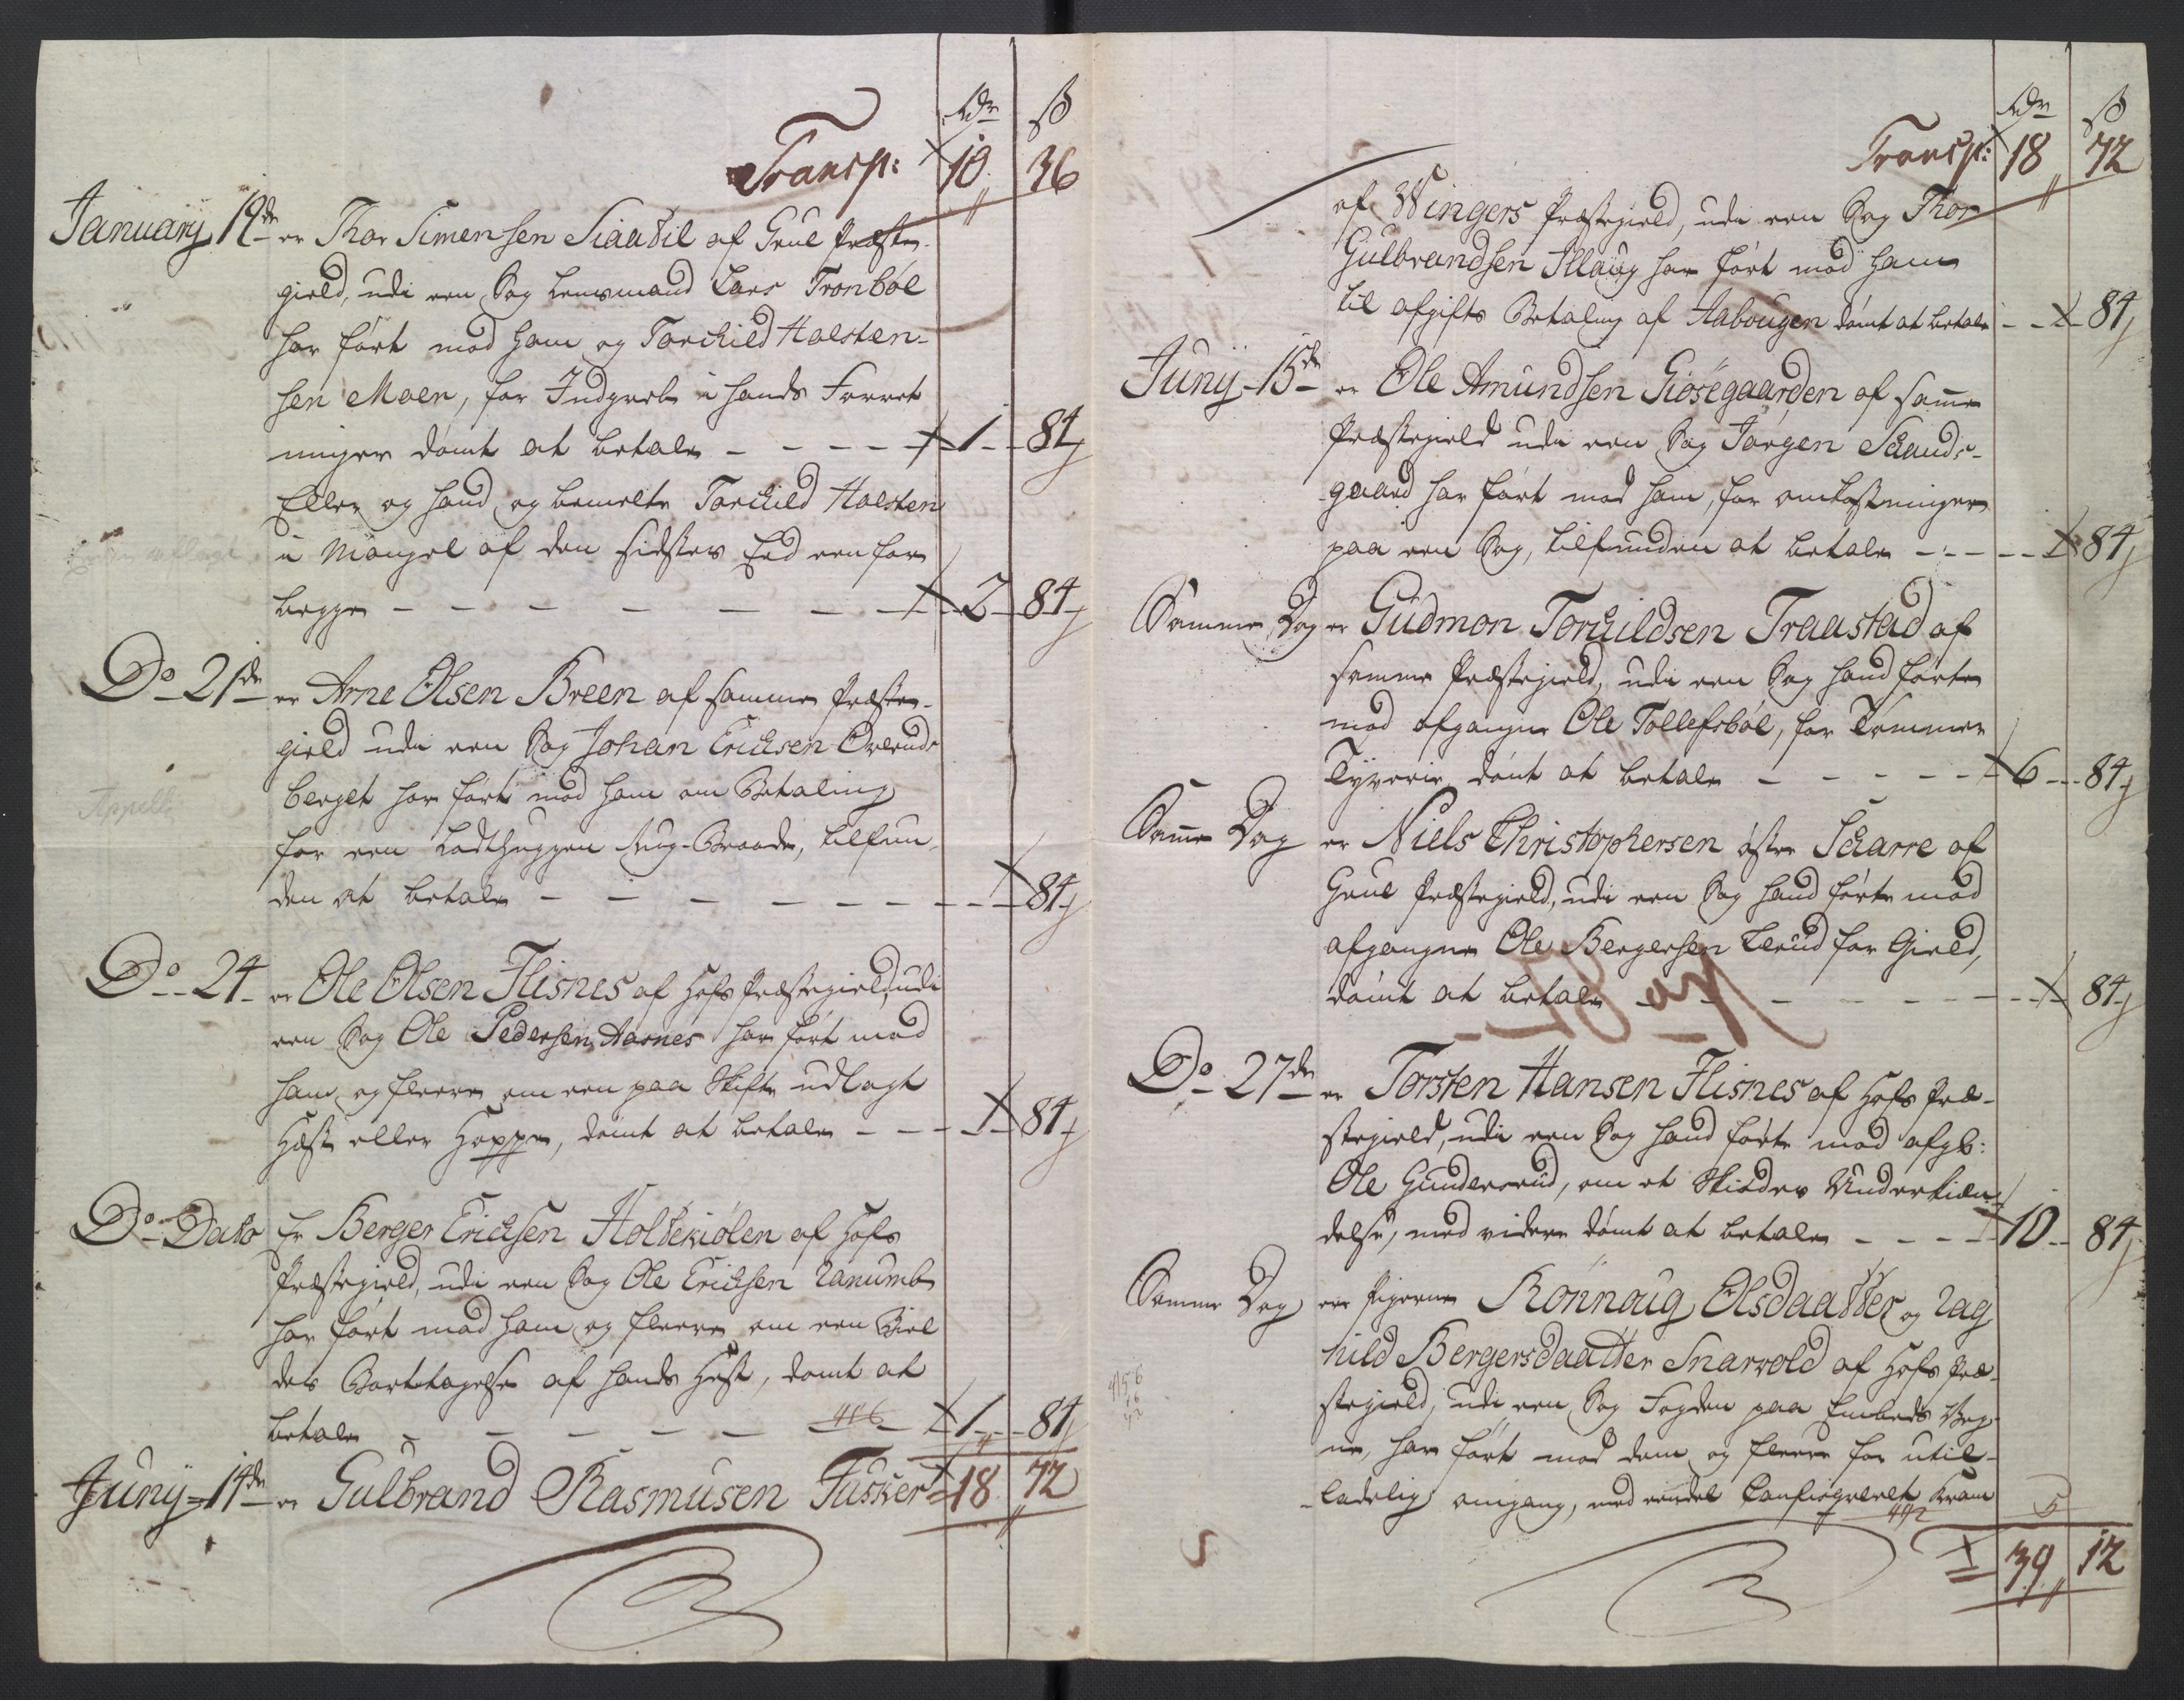 Rdr ß
Transp: 10 36
January 19de er Thor Simensen Siaatil af Grue Præste-
gield, udi een Sag Lensmand Lars Tronböl
har fört mod ham og Torchild Halsten-
sen Moen, for Indgreb i hands Forret
ninger dömt at betale - - - - 1 - 84
Eller og hand og bemelte Torchild Halsten
i Mangel af den sidstes Eed een for
begge - - - - - - - 2 - 84
Do 21de er Arne Olsen Breen af samme Præste-
gield udi een Sag Johan Erichsen Overuds
berget har fört mod ham om Betaling
for een Rug-Braade, tilfun
den at betale - - - - - - - 84
Do - 24 - er Ole Olsen Flisnes af Hofs Præstegield, udi
een Sag Ole Pedersen Aasnes har fört mod
ham og fleere om een paa Skifte udlagt
Hæst eller Hoppe, dömt at betale - - - 1 - 84
Do - Dato Er Berger Erichsen Holtekiölen af Hofs
Præstegield, udi een Sag Ole Erichsen
har fört mod ham og fleere om een
des Borttagelse af hands Hest, dömt at
betale - - - - - 1 - 84
Juny - 14de er Gulbrand Rasmusen Tusker 18 72
Rdr ß
Transp: 18 72
af Wingers Præstegield, udi een Sag Thor
Gulbrandsen Illaug har fört mod ham
til afgifts Betaling af Aabougen dömt at betale - - 2 - 84
Juny - 15de er Ole Amundsen Giösegaarden af same
Præstegield udi een Sag Jörgen Schands-
gaard har fört mod ham, for omkostninger
paa een Sag, tilfunden at betale - - - - 84
Samme Dag er Gudmon Torchildsen Traastad af
samme Præstegield, udi een Sag hand förte
mod afgangne Ole Tollefsböl, for Tömmer
Tyverie dömt at betale - - - - - 6 - - 84
Same Dag er Niels Christophersen öster Scharre af
Grue Præstegield, udi een Sag hand förte mod
afgangne Ole Bergersen Lerud for Gield,
dömt at betale - - - - - - - 84
Do - 27de er Torsten Hansen Flisnes af Hofs Præ-
stegield, udi een Sag hand förte mod afg:
Ole Gunderserud, om et Skiödes Underkien-
delse, med videre dömt at betale - - - - 10 - 84
Samme Dag ere Pigerne Rönnoug Olsdaatter og Rag
hild Bergersdaatter Snarvold af Hofs Præ-
stegield, udi een Sag Fogden paa Embeds Veg-
ne, har fört mod dem og fleere for util-
ladelig omgang, med eendel Confisqveret Kram
39 12